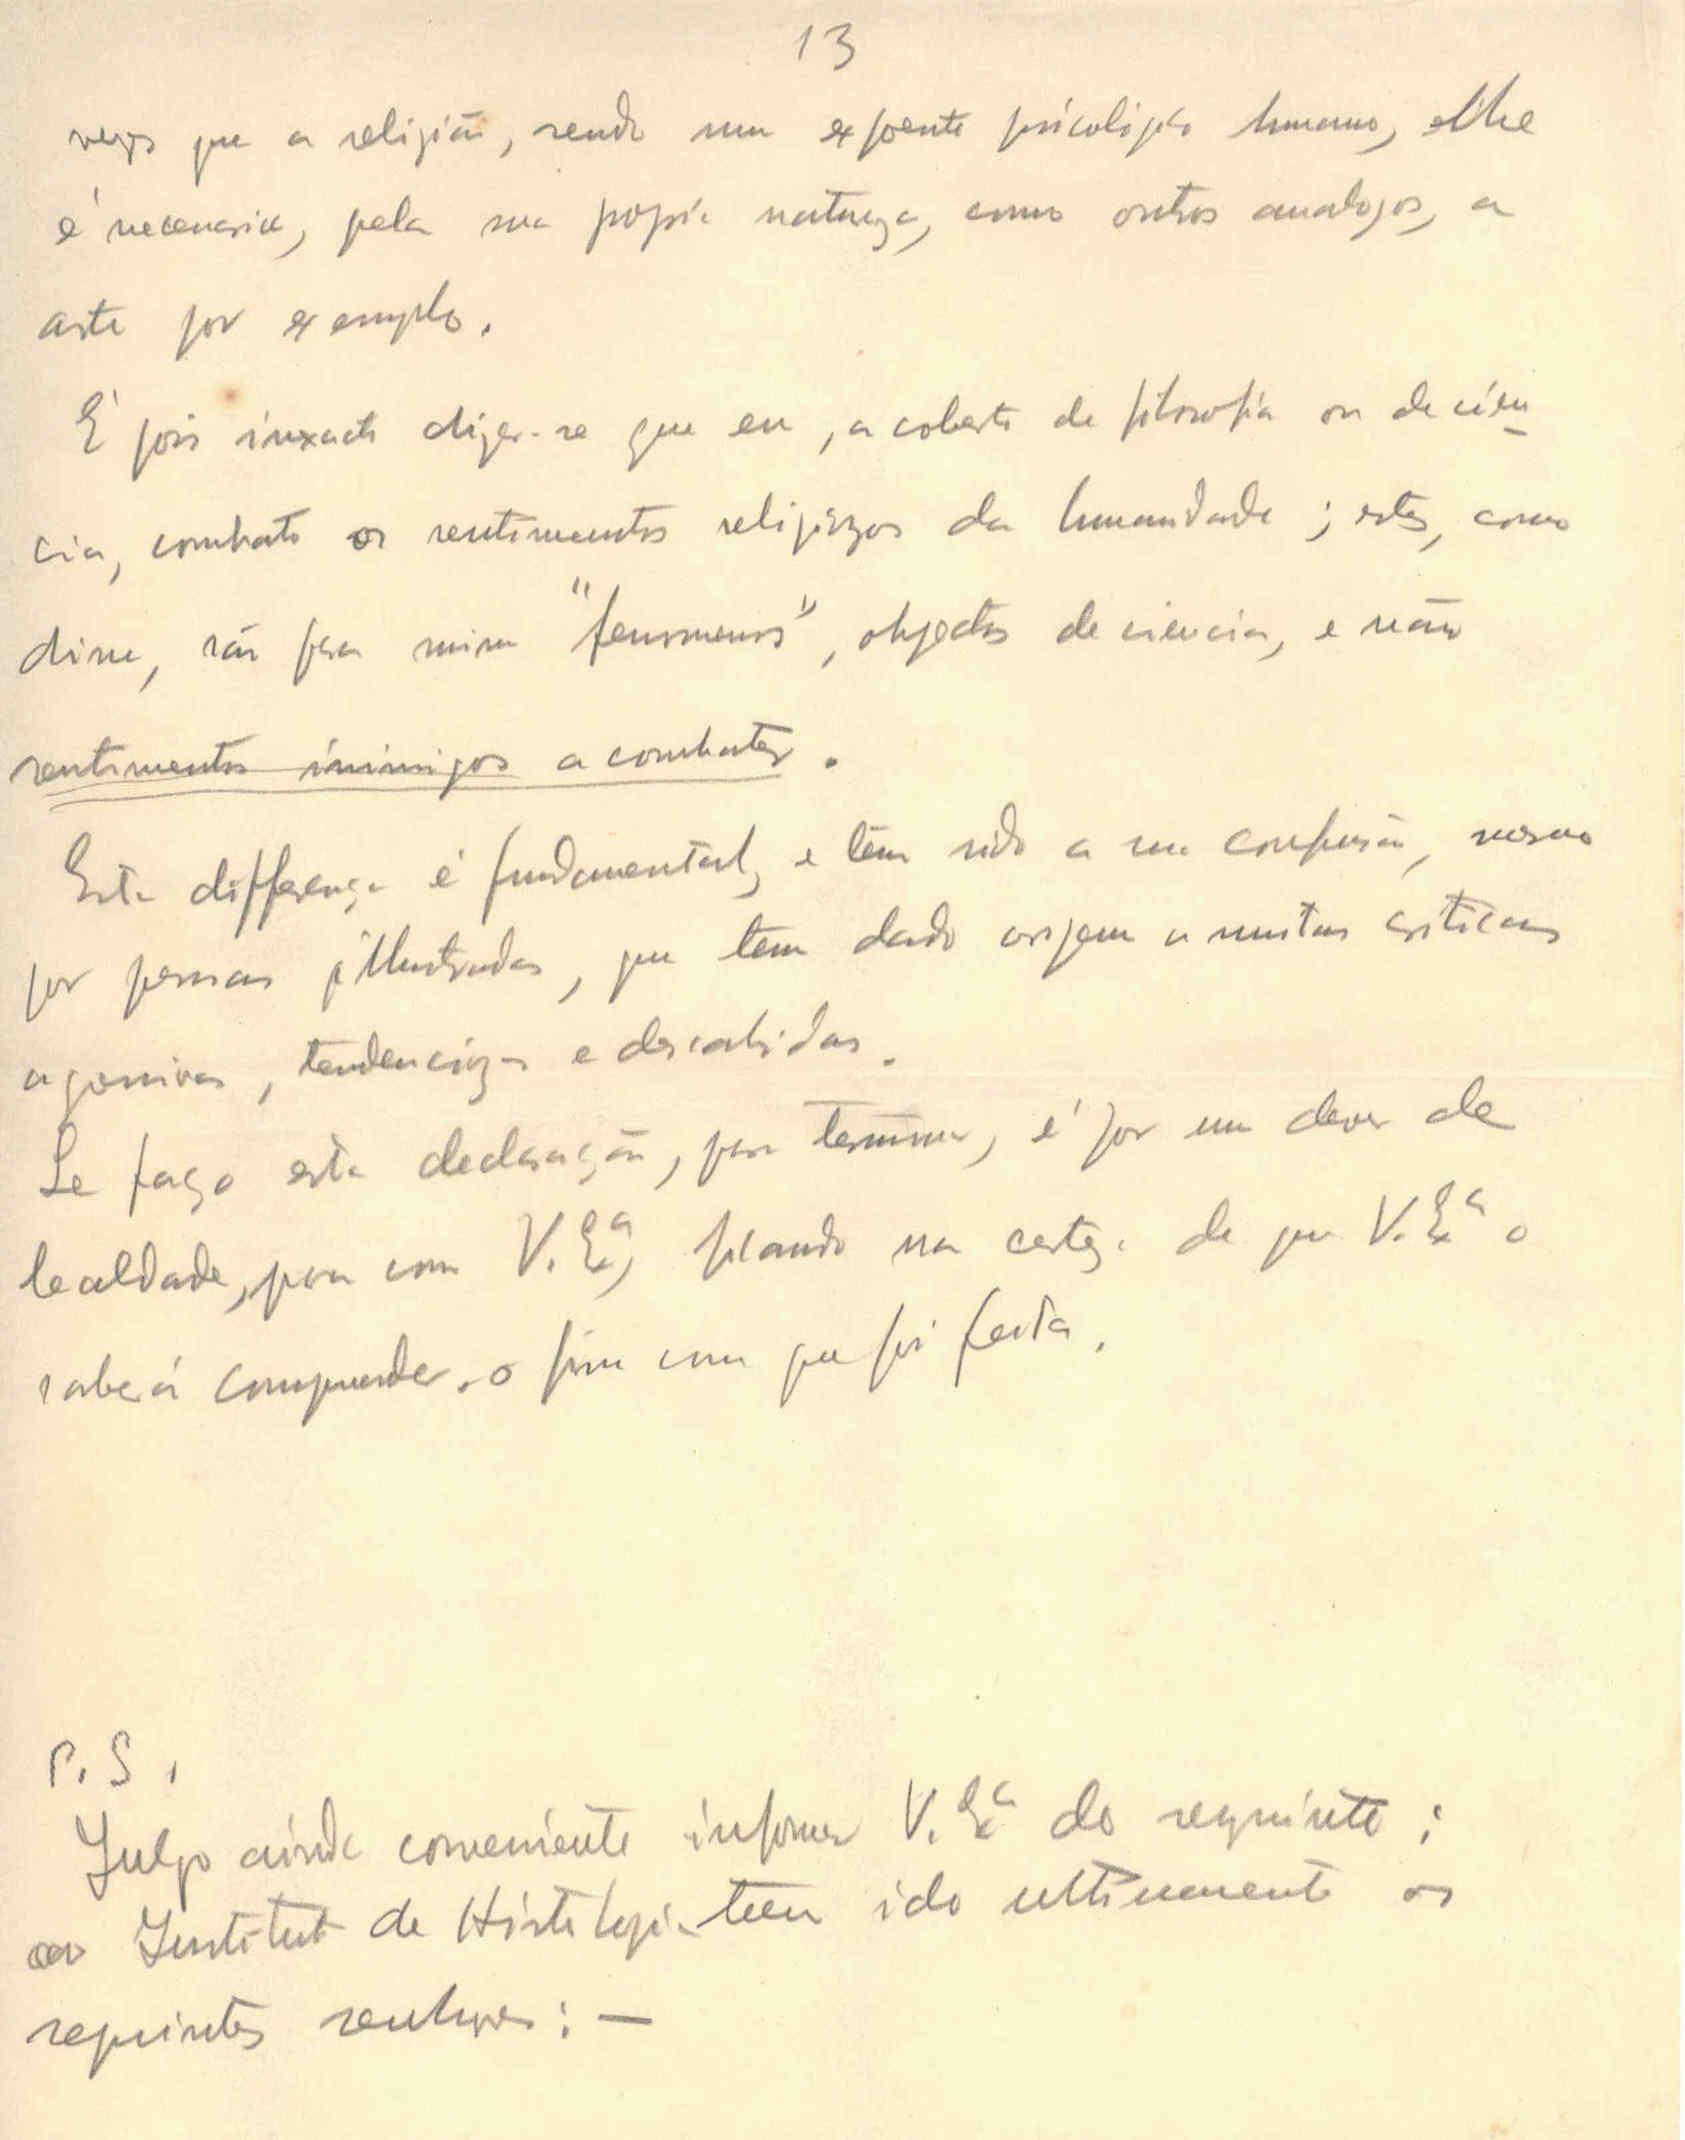 13
vezes que a religião, sendo um expoente psicologico humano, élhe
é necessaria, pela sua propria natureza, como outros analogos, a
arte por exemplo.
É pois inexacto dizer-se que eu, a coberto de filosofia ou de ciên-
cia, combato os sentimentos religiozos da humanidade; estes, como
disse, são para mim "fenomenos", objectos de ciencia, e não
sentimentos inimigos a combater.
Esta differença é fundamental, e têm sido a sua confusão, mesmo
por pessoas illustradas, que tem dado origem a muitas criticas
agressivas, tendenciozas e descabidas.
Se faço esta declaração, para terminar, é por um dever de
lealdade, para com V. Exª, ficando na certeza de que V. Exª o
saberá comprender. o fim com que foi feita.
P. S.
Julgo ainda conveniente informar V. Exª do seguinte:
ao Instituto de Histologia teem ido ultimamente os
seguintes senhores: —